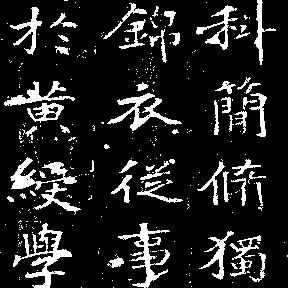 科簡脩獨
錦衣從事
於黃綬學